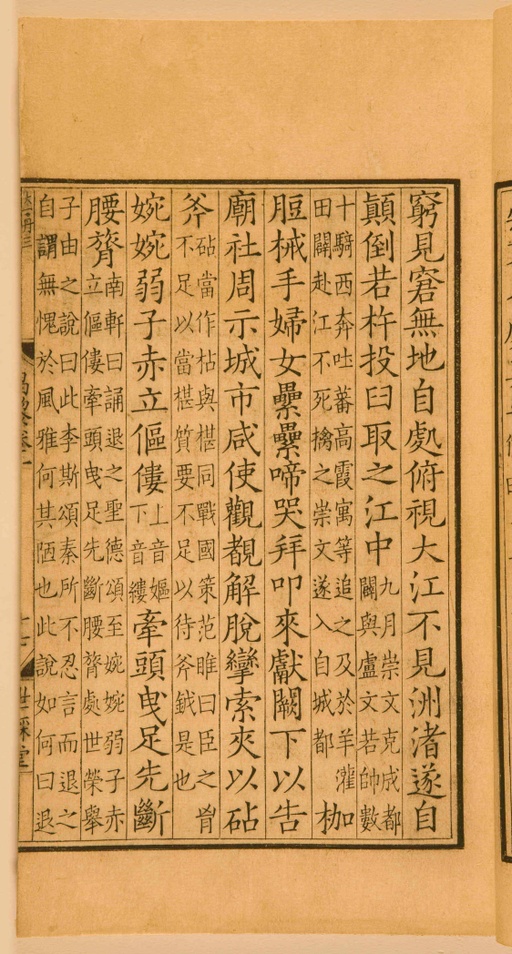 窮見窘無地自處俯視大江不見洲渚遂自
顛倒若杵投臼取之江中九月崇文克成都
闢與盧文若帥數
十騎西奔吐蕃高霞寓等追之及於羊灌
田闢赴江不死擒之崇文遂入自城都枷
脰械手婦女纍纍啼哭拜叩來獻闕下以告
廟社周示城市咸使觀覩解脫攣索夾以砧
斧砧當作枯與椹同戰國策范雎曰臣之胷
不足以當椹質要不足以待斧鉞是也
婉婉弱子赤立傴僂上音嫗
下音縷牽頭曳足先斷
腰膂南軒曰誦退之聖德頌至婉婉弱子赤
立傴僂牽頭曳足先斷腰膂處世榮舉
子由之說曰此李斯頌秦所不忍言而退之
自謂無愧於風雅何其陋也此說如何曰退
昌黎卷一
世綵堂